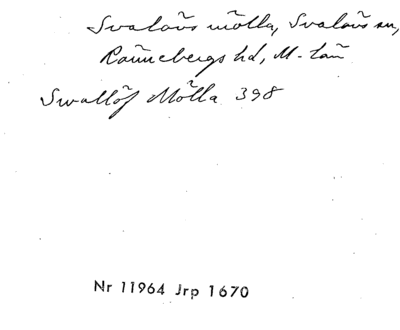 Svalövs mölla, Svalövs sn,
Rönnebergs hd, M-län
Swallöf Mölla 398
Nr 11964 Jrp 1670